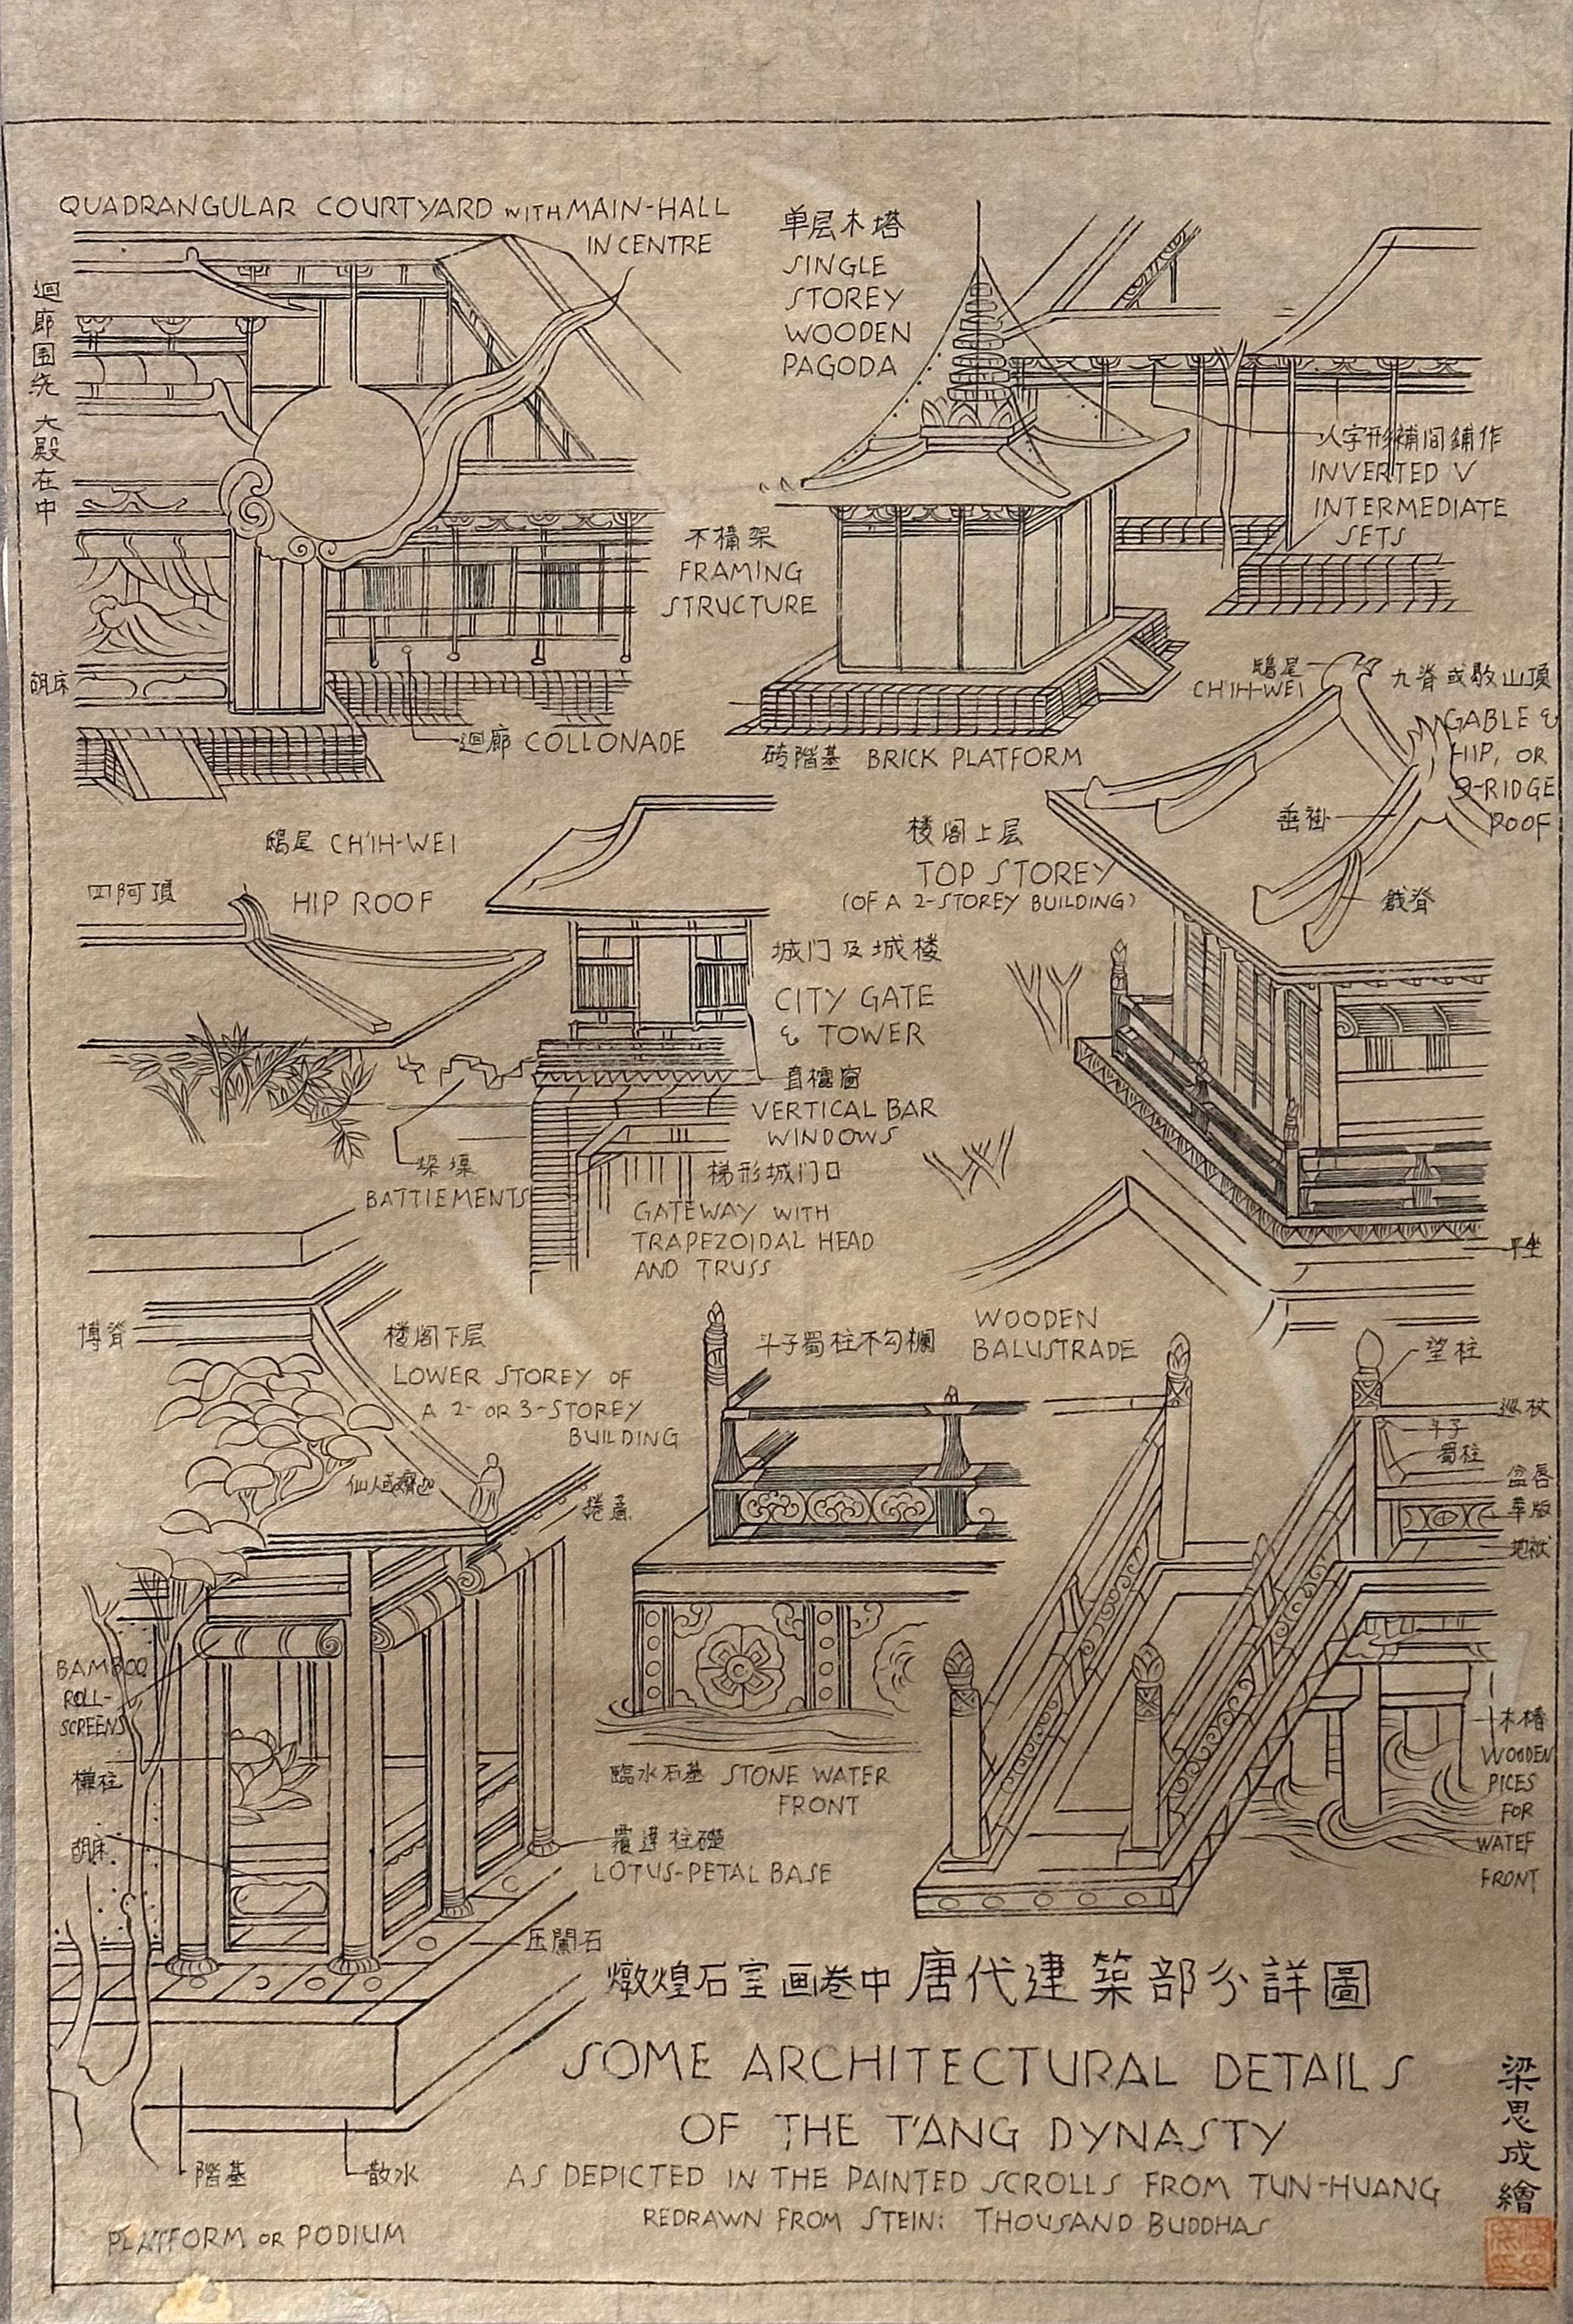 QUADRANGULAR COURTYARD WITH MAIN-HALL
IN CENTRE
迴廊围绕 大殿在中
单层木塔
SINGLE
STOREY
WOODEN
PAGODA
人字形補间鋪作
INVERTED V
INTERMEDIATE
SETS
不構架
FRAMING
STRUCTURE
胡床
迴廊 COLLONADE
砖階基 BRICK PLATFORM
鴟尾
CH'IH-WEI
九脊或歇山頂
GABLE &
HIP, OR
9-RIDGE
ROOF
垂
脊
鴟尾 CH'IH-WEI
四阿頂
HIP ROOF
楼阁上层
TOP STOREY
(OF A 2-STOREY BUILDING)
城门及城楼
CITY GATE
& TOWER
直櫺窗
VERTICAL BAR
WINDOWS
BATTIEMENTS
梯形城门口
GATEWAY WITH
TRAPEZOIDAL HEAD
AND TRUSS
平坐
博脊
楼阁下层
LOWER STOREY OF
A 2- OR 3-STOREY
BUILDING
仙人
捲
斗子蜀柱不勾欄
WOODEN
BALUSTRADE
望柱
巡杖
斗子
蜀柱
盆唇
華版
地
BAMBOO
ROLL-
SCREENS
柱
胡床
臨水石基 STONE WATER
FRONT
柱礎
LOTUS-PETAL BASE
压闌石
木樁
WOODEN
PICES
FOR
WATEF
FRONT
階基
散水
PLATFORM OR PODIUM
燉煌石室画卷中唐代建築部分詳圖
SOME ARCHITECTURAL DETAILS
OF THE T'ANG DYNASTY
AS DEPICTED IN THE PAINTED SCROLLS FROM TUN-HUANG
REDRAWN FROM STEIN: THOUSAND BUDDHAS
梁思成繪